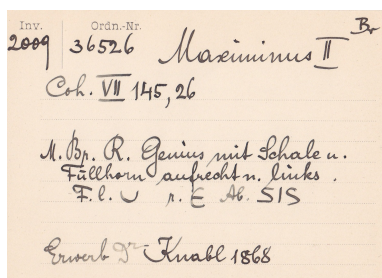 Inv. Ordn.-Nr. Br
2009 36526 Maximinus II
Coh. VII 145,26
M. Br. R. Genius mit Schale u.
Füllhorn aufrecht n. links.
F. l. U r. E Ab. SIS
Erwerb Dr. Knabl 1868